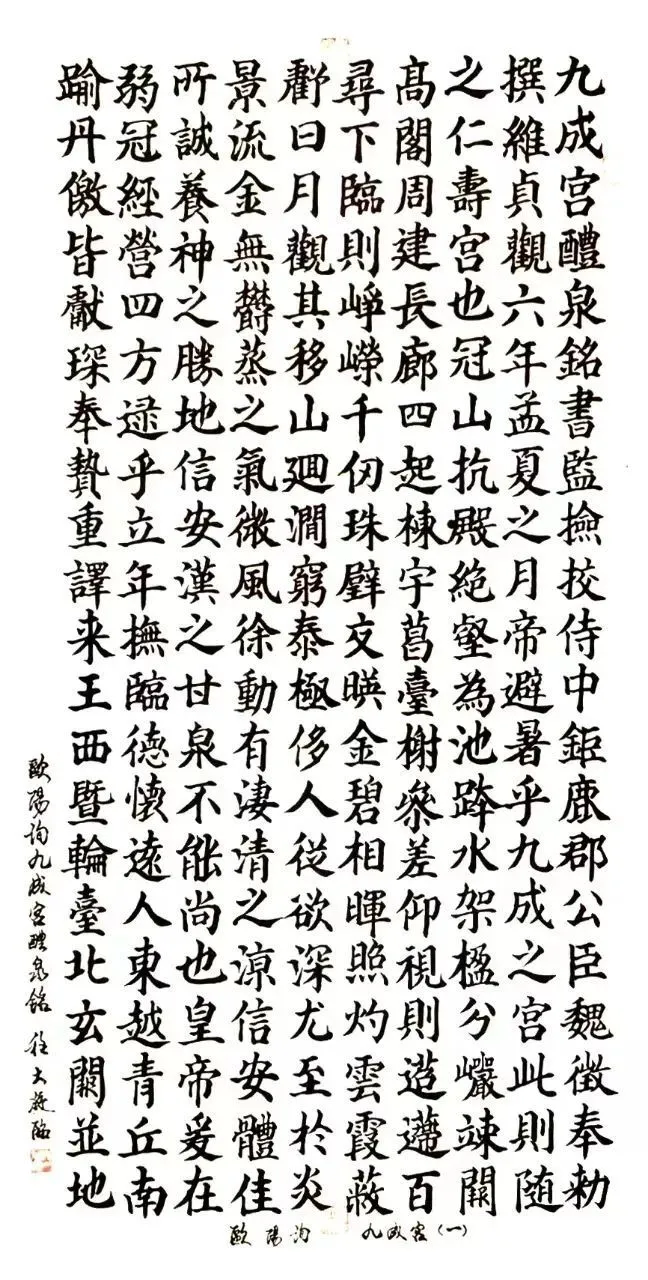 九成宫醴泉銘書監撿挍侍中鉅鹿郡公臣魏徵奉勅
撰維貞觀六年孟夏之月帝避暑乎九成之宫此則隨
之仁壽宫也冠山抗殿絶壑為池跨水架楹分巖竦闕
髙閣周建長廊四起棟宇葛臺榭參差仰視則迢遰百
尋下臨則崢嶸千仞珠壁交暎金碧相暉照灼雲霞蔽
虧日月觀其移山迴澗窮泰極侈人從欲深尤至於炎
景流金無鬱蒸之氣微風徐動有淒清之涼信安體佳
所誠養神之勝地信安漢之甘泉不能尚也皇帝爰在
弱冠經營四方逮乎立年撫臨德懷遠人東越青丘南
踰丹儌皆獻琛奉贄重譯来王西曁輪臺北玄闕並地
歐陽詢九成宫醴泉銘 大臨
歐陽詢 九成宫(一)